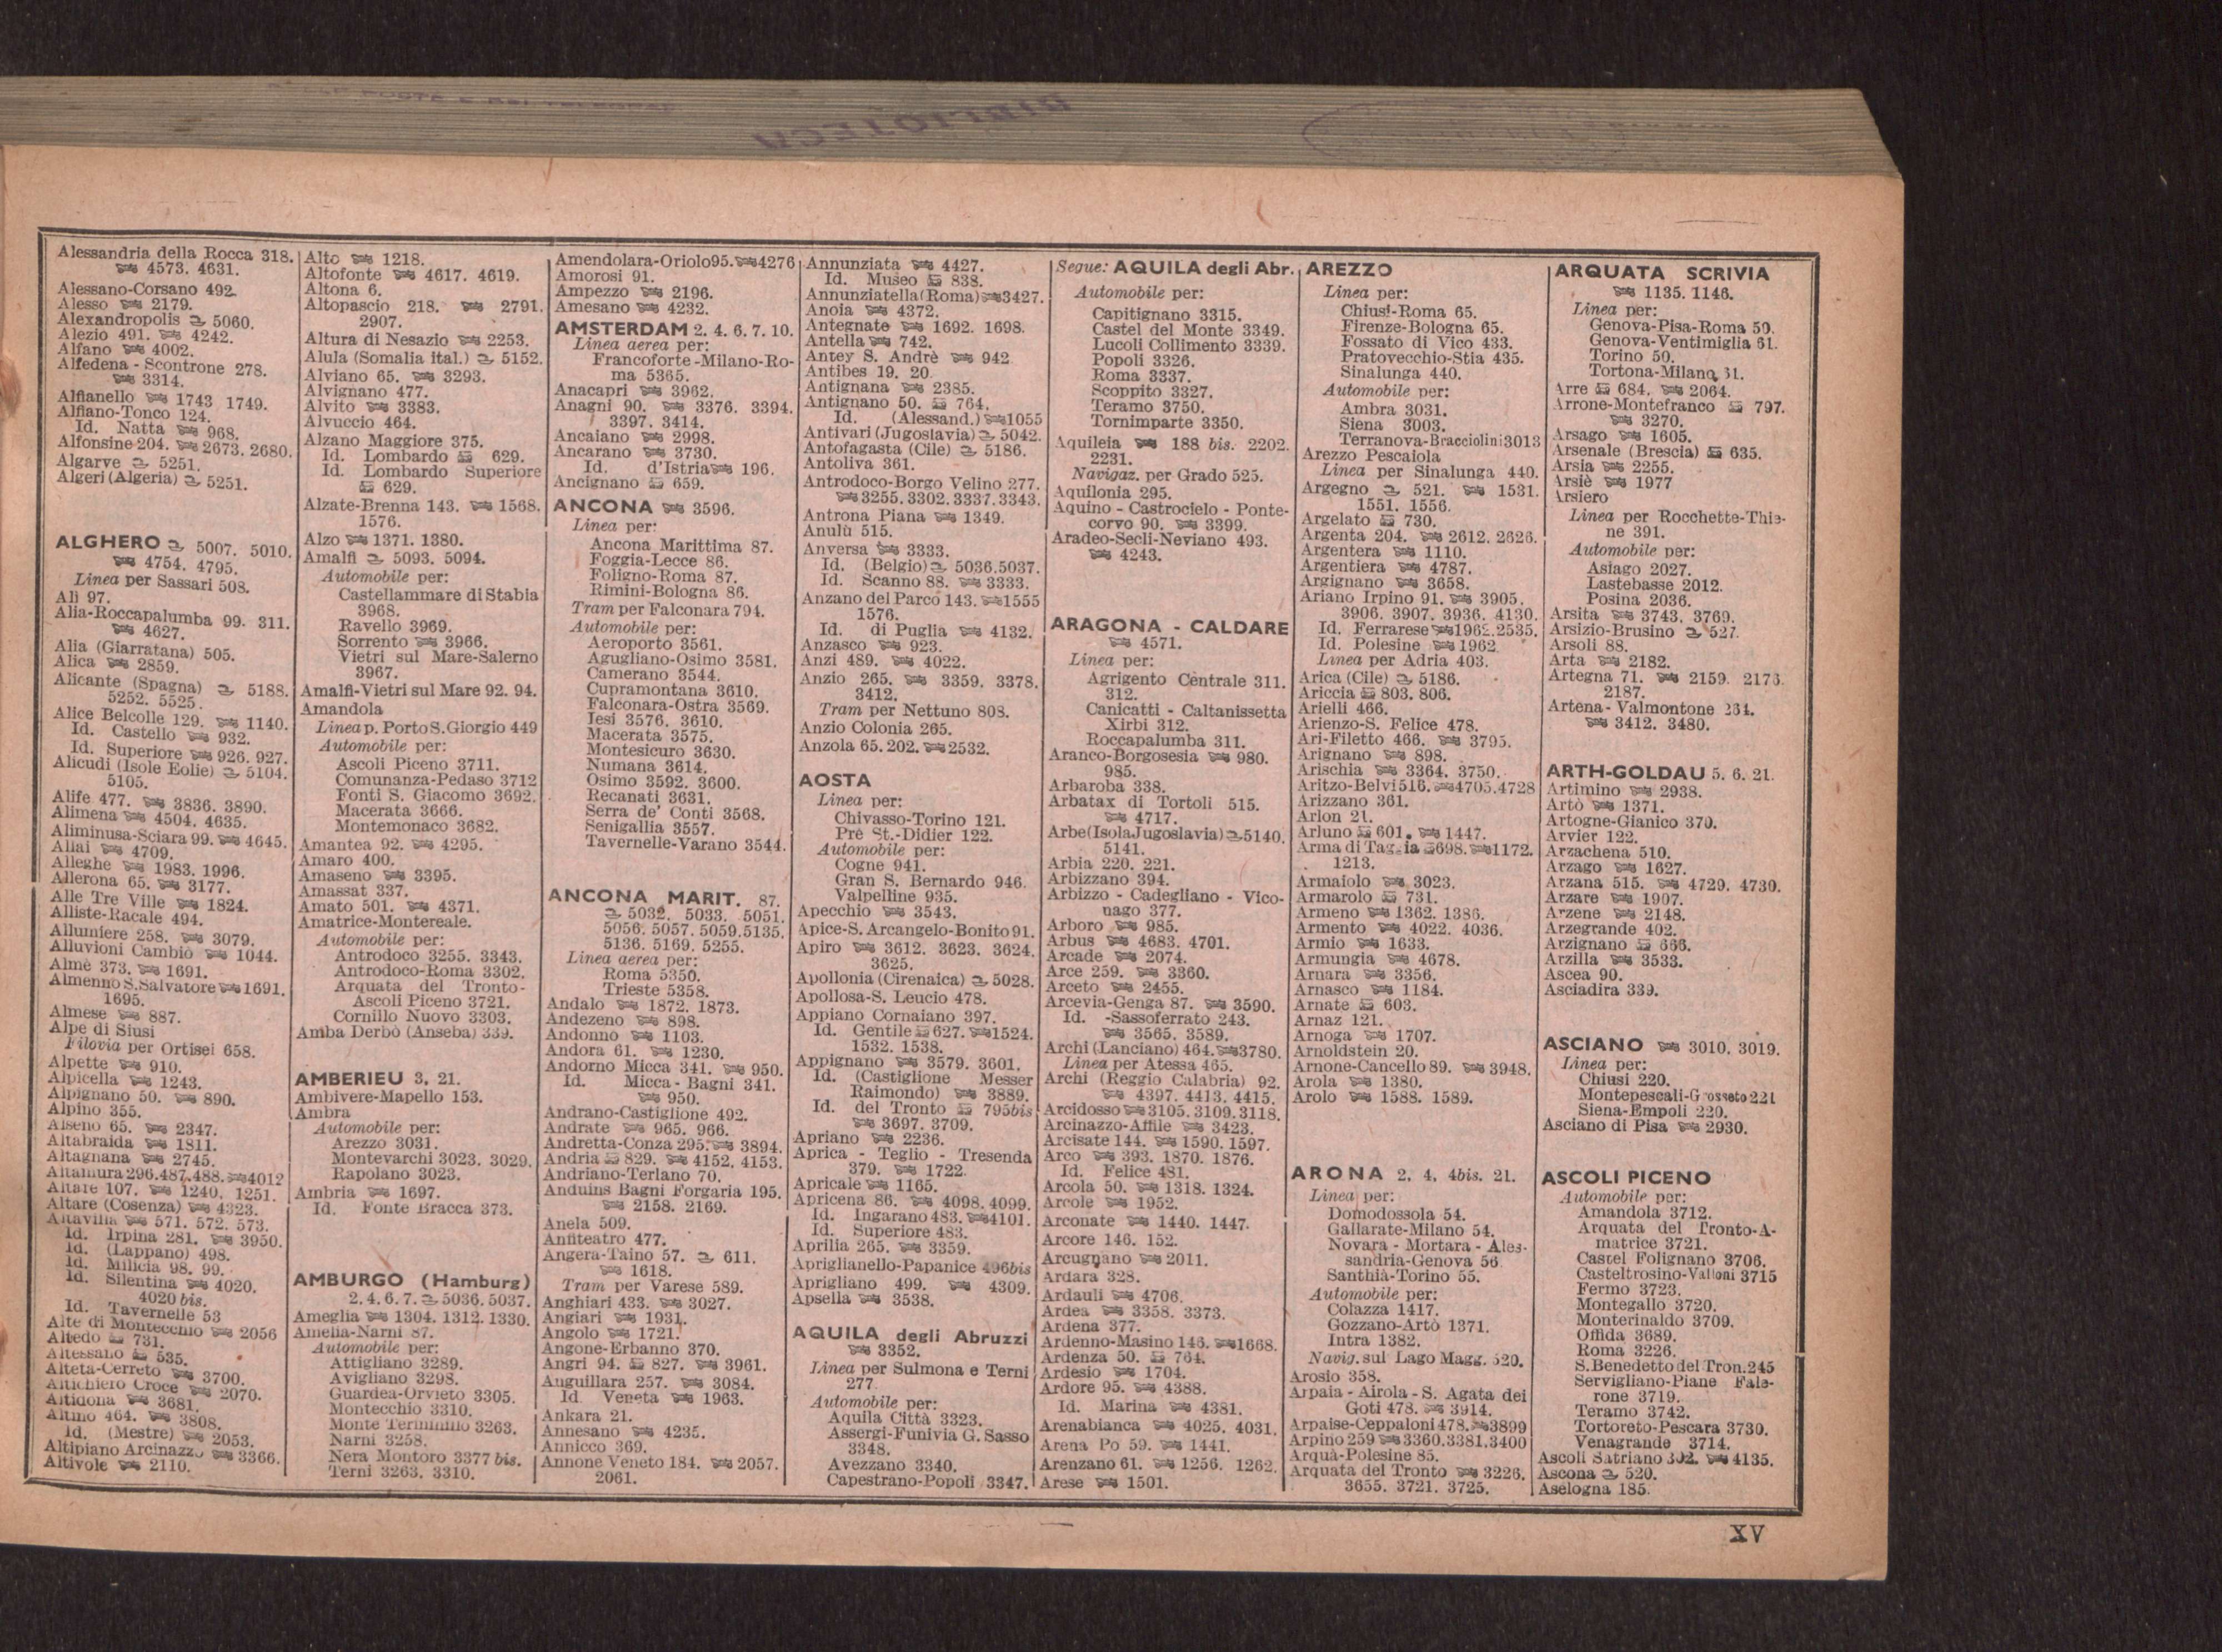 BIBLIOTECA
Alessandria della Rocca 318.
4573. 4631.
Alessano-Corsano 492.
Alesso 2179.
Alexandropolis 5060.
Alezio 491. 4242.
Alfano 4002.
Alfedena - Scontrone 278.
3314.
Alfianello 1743 1749.
Alfiano-Tonco 124.
Id. Natta 968.
Alfonsine 204. 2673. 2680.
Algarve 5251.
Algeri (Algeria) 5251.
ALGHERO 5007. 5010.
4754. 4795.
Linea per Sassari 508.
Alì 97.
Alia-Roccapalumba 99. 311.
4627.
Alia (Giarratana) 505.
Alica 2859.
Alicante (Spagna) 5188.
5252. 5525.
Alice Belcolle 129. 1140.
Id. Castello 932.
Id. Superiore 926. 927.
Alicudi (Isole Eolie) 5104.
5105.
Alife 477. 3836. 3890.
Alimena 4504. 4635.
Aliminusa-Sciara 99. 4645.
Allai 4709.
Alleghe 1983. 1996.
Allerona 65. 3177.
Alle Tre Ville 1824.
Alliste-Racale 494.
Allumiere 258. 3079.
Alluvioni Cambiò 1044.
Almè 373. 1691.
Almenno S. Salvatore 1691.
1695.
Almese 887.
Alpe di Siusi
Filovia per Ortisei 658.
Alpette 910.
Alpicella 1243.
Alpignano 50. 890.
Alpino 355.
Alseno 65. 2347.
Altabraida 1811.
Altagnana 2745.
Altamura 296.487.488. 4012
Altare 107. 1240. 1251.
Altare (Cosenza) 4323.
Altavilla 571. 572. 573.
Id. Irpina 281. 3950.
Id. (Lappano) 498.
Id. Milicia 98. 99.
Id. Silentina 4020.
4020 bis.
Id. Tavernelle 53
Alte di Montecchio 2056
Altedo 731.
Altessano 535.
Alteta-Cerreto 3700.
Altichiero Croce 2070.
Altidona 3681.
Altino 464. 3808.
Id. (Mestre) 2053.
Altipiano Arcinazzo 3366.
Altivole 2110.
Alto 1218.
Altofonte 4617. 4619.
Altona 6.
Altopascio 218. 2791.
2907.
Altura di Nesazio 2253.
Alula (Somalia ital.) 5152.
Alviano 65. 3293.
Alvignano 477.
Alvito 3383.
Alvuccio 464.
Alzano Maggiore 375.
Id. Lombardo 629.
Id. Lombardo Superiore
629.
Alzate-Brenna 143. 1568.
1576.
Alzo 1371. 1380.
Amalfi 5093. 5094.
Automobile per:
Castellammare di Stabia
3968.
Ravello 3969.
Sorrento 3966.
Vietri sul Mare-Salerno
3967.
Amalfi-Vietri sul Mare 92. 94.
Amandola
Linea p. Porto S. Giorgio 449
Automobile per:
Ascoli Piceno 3711.
Comunanza-Pedaso 3712
Fonti S. Giacomo 3692.
Macerata 3666.
Montemonaco 3682.
Amantea 92. 4295.
Amaro 400.
Amaseno 3395.
Amassat 337.
Amato 501. 4371.
Amatrice-Montereale.
Automobile per:
Antrodoco 3255. 3343.
Antrodoco-Roma 3302.
Arquata del Tronto-
Ascoli Piceno 3721.
Cornillo Nuovo 3303.
Amba Derbò (Anseba) 339.
AMBERIEU 3, 21.
Ambivere-Mapello 153.
Ambra
Automobile per:
Arezzo 3031.
Montevarchi 3023. 3029.
Rapolano 3023.
Ambria 1697.
Id. Fonte Bracca 373.
AMBURGO (Hamburg)
2. 4. 6. 7. 5036. 5037.
Ameglia 1304. 1312. 1330.
Amelia-Narni 87.
Automobile per:
Attigliano 3289.
Avigliano 3298.
Guardea-Orvieto 3305.
Montecchio 3310.
Monte Terminillo 3263.
Narni 3258.
Nera Montoro 3377 bis.
Terni 3263. 3310.
Amendolara-Oriolo 95. 4276
Amorosi 91.
Ampezzo 2196.
Amesano 4232.
AMSTERDAM 2. 4. 6. 7. 10.
Linea aerea per:
Francoforte-Milano-Ro-
ma 5365.
Anacapri 3962.
Anagni 90. 3376. 3394.
3397. 3414.
Ancaiano 2998.
Ancarano 3730.
Id. d'Istria 196.
Ancignano 659.
ANCONA 3596.
Linea per:
Ancona Marittima 87.
Foggia-Lecce 86.
Foligno-Roma 87.
Rimini-Bologna 86.
Tram per Falconara 794.
Automobile per:
Aeroporto 3561.
Agugliano-Osimo 3581.
Camerano 3544.
Cupramontana 3610.
Falconara-Ostra 3569.
Iesi 3576. 3610.
Macerata 3575.
Montesicuro 3630.
Numana 3614.
Osimo 3592. 3600.
Recanati 3631.
Serra de' Conti 3568.
Senigallia 3557.
Tavernelle-Varano 3544.
ANCONA MARIT. 87.
5032. 5033. 5051.
5056. 5057. 5059. 5135.
5136. 5169. 5255.
Linea aerea per:
Roma 5350.
Trieste 5358.
Andalo 1872. 1873.
Andezeno 898.
Andonno 1103.
Andora 61. 1230.
Andorno Micca 341. 950.
Id. Micca - Bagni 341.
950.
Andrano-Castiglione 492.
Andrate 965. 966.
Andretta-Conza 295. 3894.
Andria 829. 4152. 4153.
Andriano-Terlano 70.
Anduins Bagni Forgaria 195.
2158. 2169.
Anela 509.
Anfiteatro 477.
Angera-Taino 57. 611.
1618.
Tram per Varese 589.
Anghiari 433. 3027.
Angiari 1931.
Angolo 1721.
Angone-Erbanno 370.
Angri 94. 827. 3961.
Anguillara 257. 3084.
Id. Veneta 1963.
Ankara 21.
Annesano 4235.
Annicco 369.
Annone Veneto 184. 2057.
2061.
Annunziata 4427.
Id. Museo 838.
Annunziatella (Roma) 3427.
Anoia 4372.
Antegnate 1692. 1698.
Antella 742.
Antey S. Andrè 942
Antibes 19. 20
Antignana 2385.
Antignano 50. 764.
Id. (Alessand.) 1055
Antivari (Jugoslavia) 5042.
Antofagasta (Cile) 5186.
Antoliva 361.
Antrodoco-Borgo Velino 277.
3255. 3302. 3337. 3343.
Antrona Piana 1349.
Anulù 515.
Anversa 3333.
Id. (Belgio) 5036. 5037.
Id. Scanno 88. 3333.
Anzano del Parco 143. 1555
1576.
Id. di Puglia 4132.
Anzasco 923.
Anzi 489. 4022.
Anzio 265. 3359. 3378.
3412.
Tram per Nettuno 808.
Anzio Colonia 265.
Anzola 65. 202. 2532.
AOSTA
Linea per:
Chivasso-Torino 121.
Prè St.-Didier 122.
Automobile per:
Cogne 941.
Gran S. Bernardo 946.
Valpelline 935.
Apecchio 3543.
Apice-S. Arcangelo-Bonito 91.
Apiro 3612. 3623. 3624.
3625.
Apollonia (Cirenaica) 5028.
Apollosa-S. Leucio 478.
Appiano Cornaiano 397.
Id. Gentile 627. 1524.
1532. 1538.
Appignano 3579. 3601.
Id. (Castiglione Messer
Raimondo) 3889.
Id. del Tronto 795bis
3697. 3709.
Apriano 2236.
Aprica - Teglio - Tresenda
379. 1722
Apricale 1165.
Apricena 86. 4098. 4099.
Id. Ingarano 483. 4101.
Id. Superiore 483.
Aprilia 265. 3359.
Apriglianello-Papanice 496bis
Aprigliano 499. 4309.
Apsella 3538.
AQUILA degli Abruzzi
3352.
Linea per Sulmona e Terni
277.
Automobile per:
Aquila Città 3323.
Assergi-Funivia G. Sasso
3348.
Avezzano 3340.
Capestrano-Popoli 3347.
Segue: AQUILA degli Abr.
Automobile per:
Capitignano 3315.
Castel del Monte 3349.
Lucoli Collimento 3339.
Popoli 3326.
Roma 3337.
Scoppito 3327.
Teramo 3750.
Tornimparte 3350.
Aquileia 188 bis. 2202.
2231.
Navigaz. per Grado 525.
Aquilonia 295.
Aquino - Castrocielo - Ponte-
corvo 90. 3399.
Aradeo-Seclì-Neviano 493.
4243.
ARAGONA - CALDARE
4571.
Linea per:
Agrigento Centrale 311.
312.
Canicatti - Caltanissetta
Xirbi 312.
Roccapalumba 311.
Aranco-Borgosesia 980.
985.
Arbaroba 338.
Arbatax di Tortolì 515.
4717.
Arbe (Isola Jugoslavia) 5140.
5141.
Arbia 220. 221.
Arbizzano 394.
Arbizzo - Cadegliano - Vico-
nago 377.
Arboro 985.
Arbus 4683. 4701.
Arcade 2074.
Arce 259. 3360.
Arceto 2455.
Arcevia-Genga 87. 3590.
Id. -Sassoferrato 243.
3565. 3589.
Archi (Lanciano) 464. 3780.
Linea per Atessa 465.
Archi (Reggio Calabria) 92.
4397. 4413. 4415.
Arcidosso 3105. 3109. 3118.
Arcinazzo-Affile 3423.
Arcisate 144. 1590. 1597.
Arco 393. 1870. 1876.
Id. Felice 481.
Arcola 50. 1318. 1324.
Arcole 1952.
Arconate 1440. 1447.
Arcore 146. 152.
Arcugnano 2011.
Ardara 328.
Ardauli 4706.
Ardea 3358. 3373.
Ardena 377.
Ardenno-Masino 146. 1668.
Ardenza 50. 764.
Ardesio 1704.
Ardore 95. 4388.
Id. Marina 4381.
Arenabianca 4025. 4031.
Arena Po 59. 1441.
Arenzano 61. 1256. 1262.
Arese 1501.
AREZZO
Linea per:
Chiusi-Roma 65.
Firenze-Bologna 65.
Fossato di Vico 433.
Pratovecchio-Stia 435.
Sinalunga 440.
Automobile per:
Ambra 3031.
Siena 3003.
Terranova-Bracciolini 3013
Arezzo Pescaiola
Linea per Sinalunga 440.
Argegno 521. 1531.
1551. 1556.
Argelato 730.
Argenta 204. 2612. 2626.
Argentera 1110.
Argentiera 4787.
Argignano 3658.
Ariano Irpino 91. 3905.
3906. 3907. 3936. 4130.
Id. Ferrarese 1962. 2535.
Id. Polesine 1962
Linea per Adria 403.
Arica (Cile) 5186.
Ariccia 803. 806.
Arielli 466.
Arienzo-S. Felice 478.
Ari-Filetto 466. 3795.
Arignano 898.
Arischia 3364. 3750.
Aritzo-Belvì 516. 4705. 4728
Arizzano 361.
Arlon 21.
Arluno 601. 1447.
Arma di Taggia 698. 1172.
1213.
Armaiolo 3023.
Armarolo 731.
Armeno 1362. 1386.
Armento 4022. 4036.
Armio 1633.
Armungia 4678.
Arnara 3356.
Arnasco 1184.
Arnate 603.
Arnaz 121.
Arnoga 1707.
Arnoldstein 20.
Arnone-Cancello 89. 3948.
Arola 1380.
Arolo 1588. 1589.
ARONA 2, 4, 4bis. 21.
Linea per:
Domodossola 54.
Gallarate-Milano 54.
Novara - Mortara - Ales-
sandria-Genova 56
Santhià-Torino 55.
Automobile per:
Colazza 1417.
Gozzano-Artò 1371.
Intra 1382.
Navig. sul Lago Magg. 520.
Arosio 358.
Arpaia - Airola - S. Agata dei
Goti 478. 3914.
Arpaise-Ceppaloni 478. 3899
Arpino 259 3360. 3381. 3400
Arquà-Polesine 85.
Arquata del Tronto 3226.
3655. 3721. 3725.
ARQUATA SCRIVIA
1135. 1146.
Linea per:
Genova-Pisa-Roma 50.
Genova-Ventimiglia 61.
Torino 50.
Tortona-Milano 31.
Arre 684. 2064.
Arrone-Montefranco 797.
3270.
Arsago 1605.
Arsenale (Brescia) 635.
Arsia 2255.
Arsiè 1977
Arsiero
Linea per Rocchette-Thie-
ne 391.
Automobile per:
Asiago 2027.
Lastebasse 2012.
Posina 2036.
Arsita 3743. 3769.
Arsizio-Brusino 527.
Arsoli 88.
Arta 2182.
Artegna 71. 2159. 2176.
2187.
Artena - Valmontone 264.
3412. 3480.
ARTH-GOLDAU 5. 6. 21.
Artimino 2938.
Artò 1371.
Artogne-Gianico 370.
Arvier 122.
Arzachena 510.
Arzago 1627.
Arzana 515. 4729. 4730.
Arzare 1907.
Arzene 2148.
Arzegrande 402.
Arzignano 666.
Arzilla 3533.
Ascea 90.
Asciadira 339.
ASCIANO 3010. 3019.
Linea per:
Chiusi 220.
Montepescali-Grosseto 221
Siena-Empoli 220.
Asciano di Pisa 2930.
ASCOLI PICENO
Automobile per:
Amandola 3712.
Arquata del Tronto-A-
matrice 3721.
Castel Folignano 3706.
Casteltrosino-Valloni 3715
Fermo 3723.
Montegallo 3720.
Monterinaldo 3709.
Offida 3689.
Roma 3226.
S. Benedetto del Tron. 245
Servigliano-Piane Fale-
rone 3719.
Teramo 3742.
Tortoreto-Pescara 3730.
Venagrande 3714.
Ascoli Satriano 302. 4135.
Ascona 520.
Aselogna 185.
XV